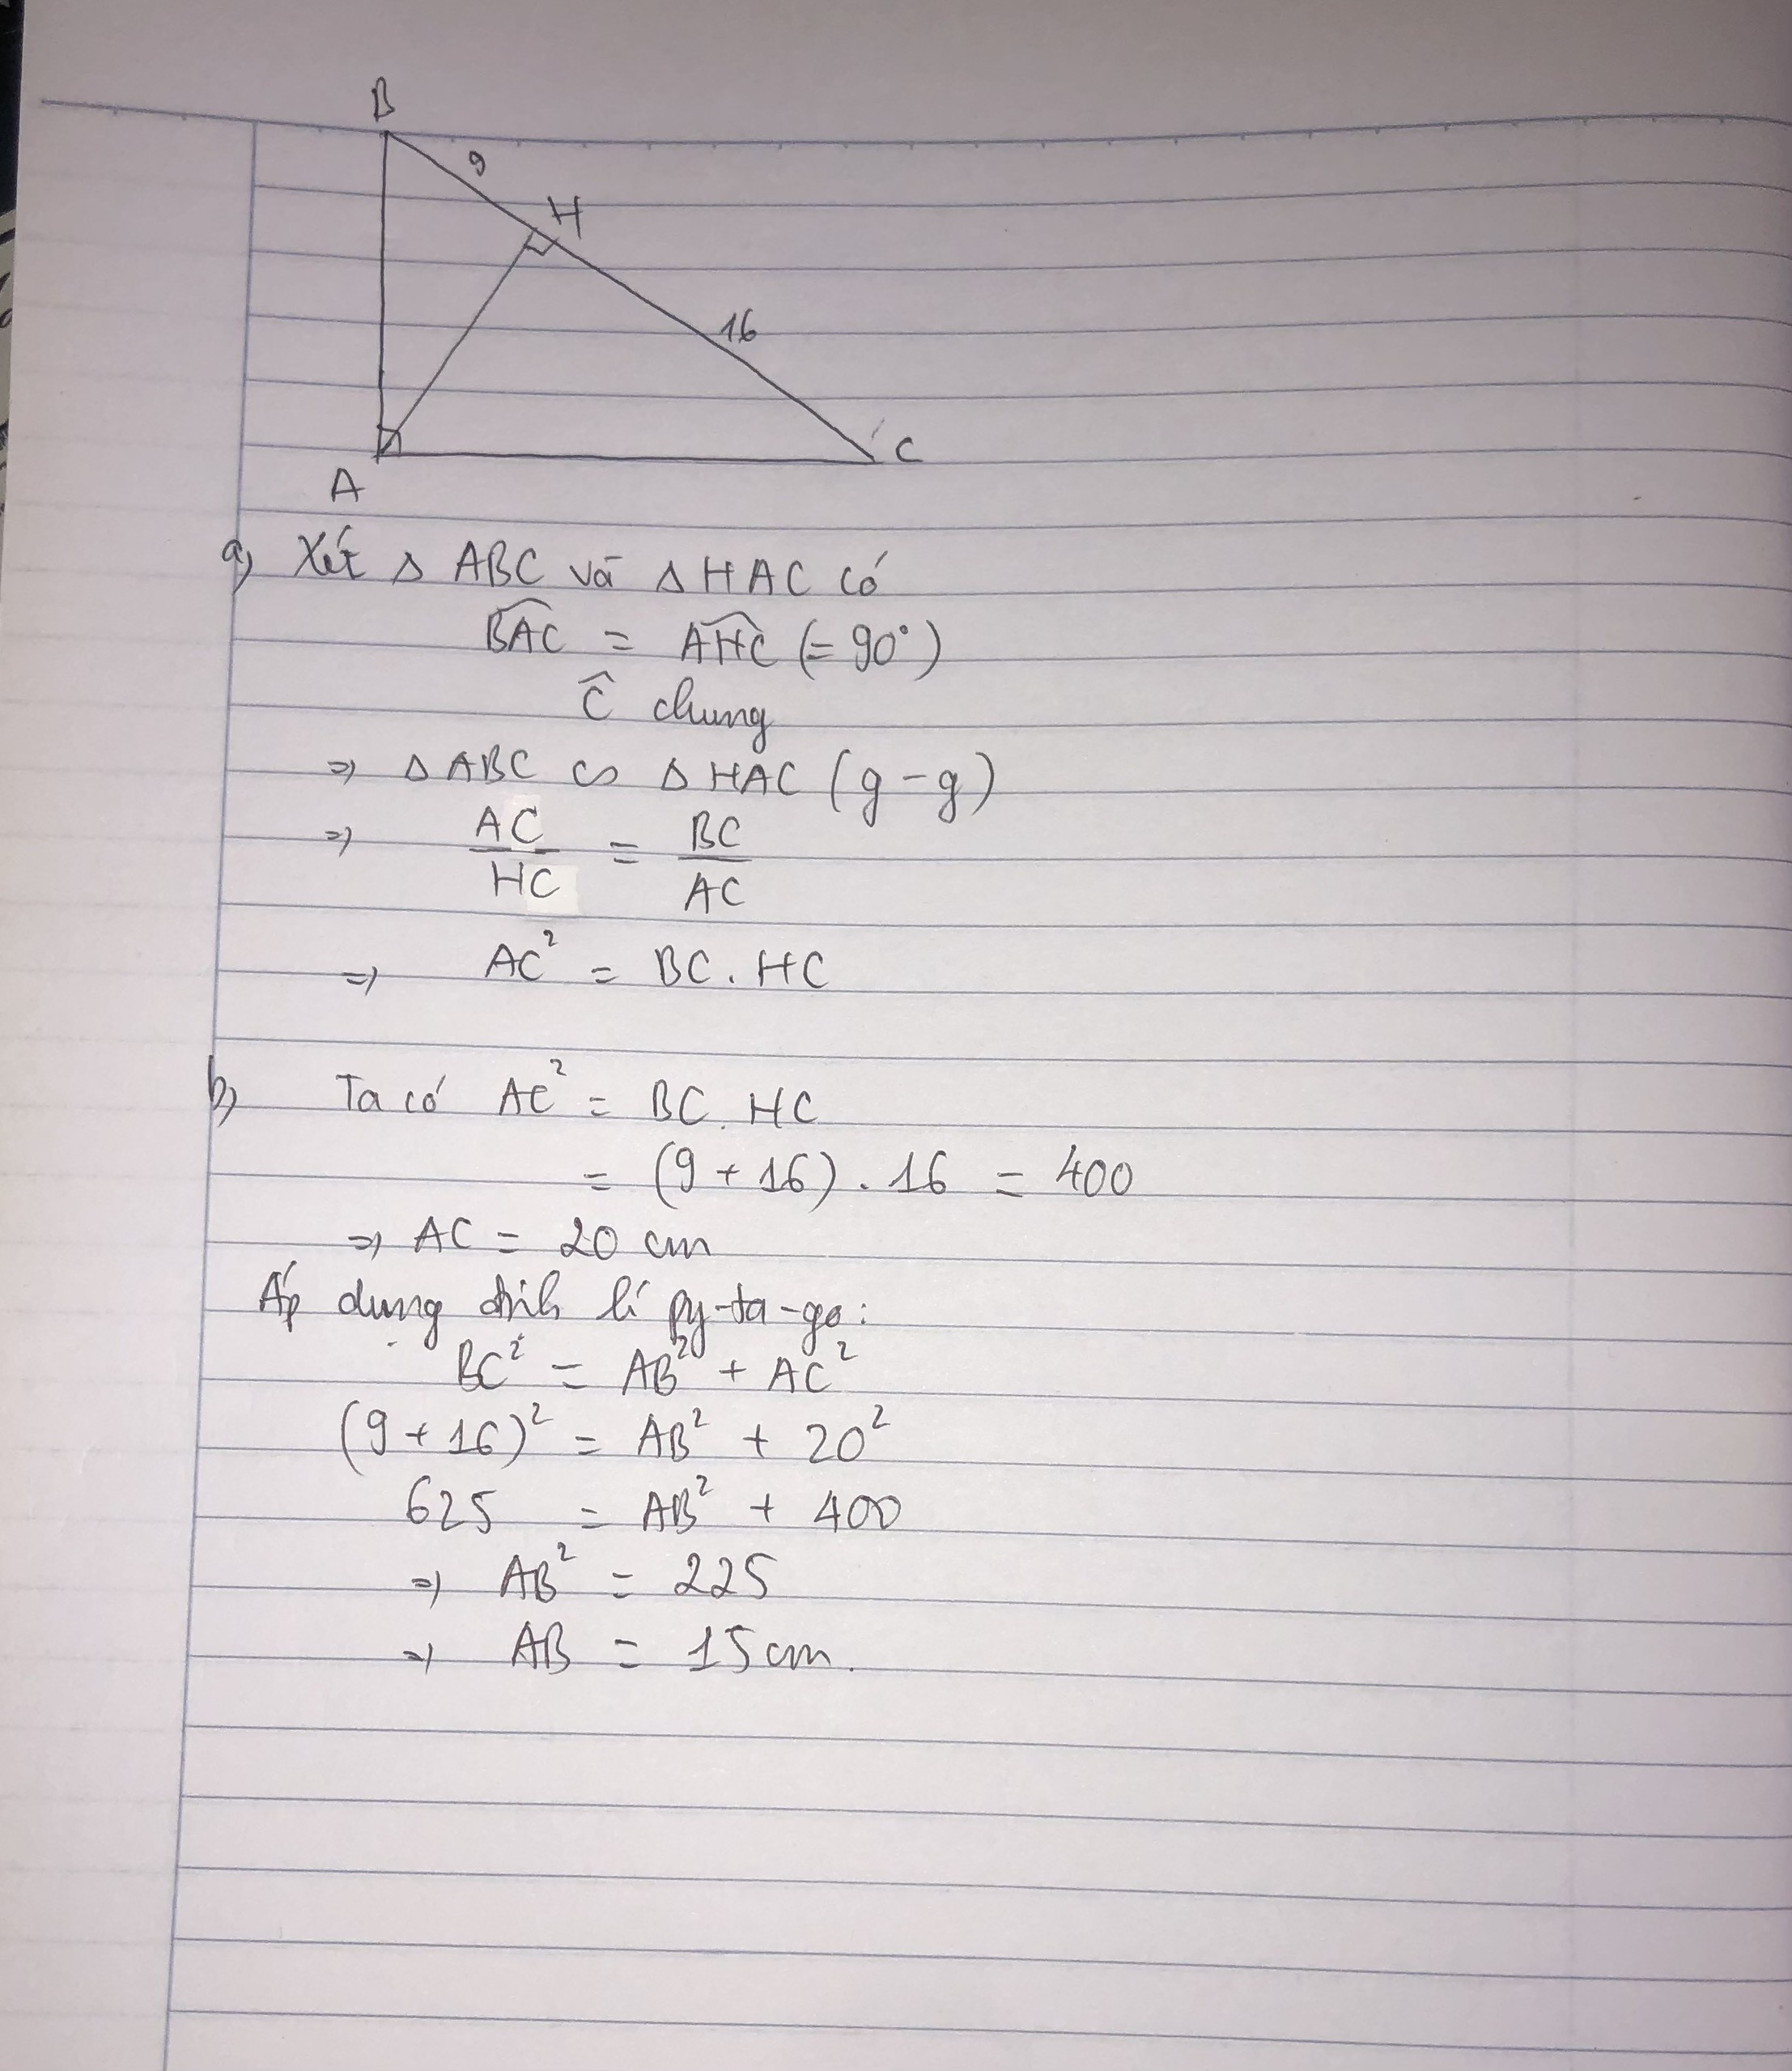 B
9
H
16
C
A
a) Xét Δ ABC và Δ HAC có
BAC^ = AHC^ (= 90°)
Ĉ chung
=> Δ ABC ∽ Δ HAC (g - g)
=> AC/HC = BC/AC
=> AC² = BC . HC
b) Ta có AC² = BC . HC
= (9 + 16) . 16 = 400
=> AC = 20 cm
Áp dụng định lí py-ta-go:
BC² = AB² + AC²
(9 + 16)² = AB² + 20²
625 = AB² + 400
=> AB² = 225
=> AB = 15 cm.